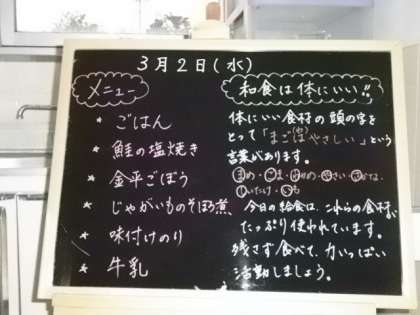 3月2日(水)
メニュー
* ごはん
* 鮭の塩焼き
* 金平ごぼう
* じゃがいものそぼろ煮
* 味付けのり
* 牛乳
和食は体にいい!!
体にいい食材の頭の字を
とって「まごは(わ)やさしい」という
言葉があります。
まめ・ごま・わかめ・やさい・さかな・
しいたけ・いも
今日の給食は、これらの食材が
たっぷり使われています。
残さず食べて、力いっぱい
活動しましょう。